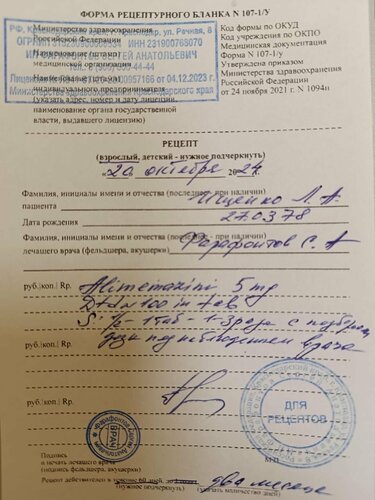 ФОРМА РЕЦЕПТУРНОГО БЛАНКА N 107-1/У
Министерство здравоохранения
Российской Федерации
Наименование (штамп)
медицинской организации
Наименование (штамп)
индивидуального предпринимателя
(указать адрес, номер и дату лицензии,
наименование органа государственной
власти, выдавшего лицензию)
РФ, ул. Речная, 8
ОГРНИП ИНН 231900766070
ИП ФАРАФОНТОВ СЕРГЕЙ АНАТОЛЬЕВИЧ
от 04.12.2023 г.
Министерства здравоохранения Краснодарского края
Код формы по ОКУД
Код учреждения по ОКПО
Медицинская документация
Форма N 107-1/у
Утверждена приказом
Министерства здравоохранения
Российской Федерации
от 24 ноября 2021 г. N 1094н
РЕЦЕПТ
(взрослый, детский - нужное подчеркнуть)
"20" октября 2024г.
Фамилия, инициалы имени и отчества (последнее - при наличии)
пациента Ищенко Л. А.
Дата рождения 27.03.78
Фамилия, инициалы имени и отчества (последнее - при наличии)
лечащего врача (фельдшера, акушерки) Фарафонтов С. А
руб.|коп.| Rp. Alimemazini 5 mg
D.t.d. N 100 in tab
S: 1 таб - 1-3 раза с подбором
руб.|коп.| Rp. дозы под наблюдением врача
руб.|коп.| Rp.
ВРАЧ
ДЛЯ
РЕЦЕПТОВ
Подпись
и печать лечащего врача
(подпись фельдшера, акушерки)
М.П.
Рецепт действителен в течение 60 дней, до 1 года два месяца
(нужное подчеркнуть) (указать количество месяцев)